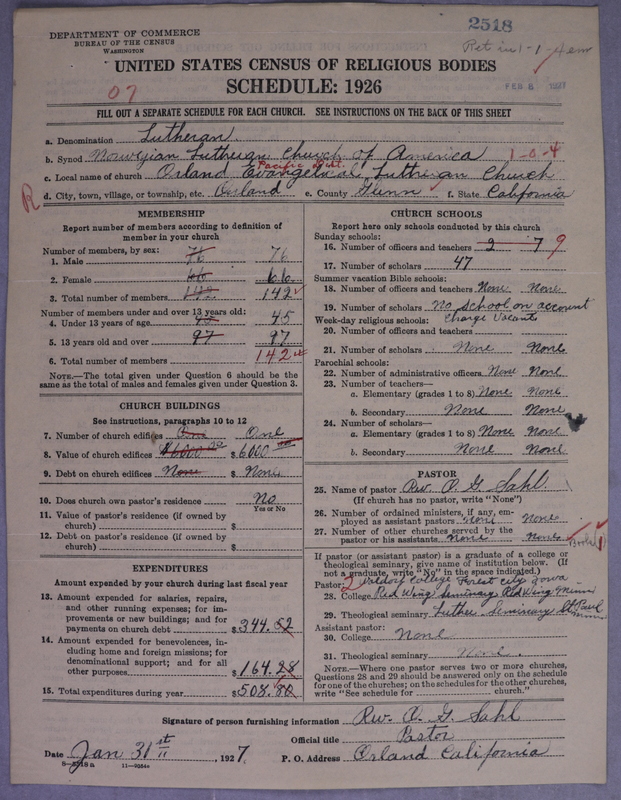 DEPARTMENT OF COMMERCE
BUREAU OF THE CENSUS
WASHINGTON
2518
Ret in 1-1-4
UNITED STATES CENSUS OF RELIGIOUS BODIES
SCHEDULE: 1926
07
FEB 8 1927
FILL OUT A SEPARATE SCHEDULE FOR EACH CHURCH. SEE INSTRUCTIONS ON THE BACK OF THIS SHEET
a. Denomination Lutheran
b. Synod Norwegian Lutheran Church of America 1-0-4
Pacific Dist.
c. Local name of church Orland Evangelical Lutheran Church
R
d. City, town, village, or township, etc. Orland e. County Glenn f. State California
MEMBERSHIP
Report number of members according to definition of
member in your church
Number of members, by sex:
1. Male 76 76
2. Female 66 66
3. Total number of members 142 142
Number of members under and over 13 years old:
4. Under 13 years of age 45 45
5. 13 years old and over 97 97
6. Total number of members 142
NOTE.—The total given under Question 6 should be the
same as the total of males and females given under Question 3.
CHURCH BUILDINGS
See instructions, paragraphs 10 to 12
7. Number of church edifices One One
8. Value of church edifices $6000 $6000
9. Debt on church edifices None $ None
10. Does church own pastor's residence No
Yes or No
11. Value of pastor's residence (if owned by
church) $
12. Debt on pastor's residence (if owned by
church) $
EXPENDITURES
Amount expended by your church during last fiscal year
13. Amount expended for salaries, repairs,
and other running expenses; for im-
provements or new buildings; and for
payments on church debt $344.52
14. Amount expended for benevolences, in-
cluding home and foreign missions; for
denominational support; and for all
other purposes $164.28
15. Total expenditures during year $508.80
CHURCH SCHOOLS
Report here only schools conducted by this church
Sunday schools:
16. Number of officers and teachers 2 7 9
17. Number of scholars 47
Summer vacation Bible schools:
18. Number of officers and teachers None None
19. Number of scholars No school on account
Week-day religious schools: Charge Vacant
20. Number of officers and teachers
21. Number of scholars None None
Parochial schools:
22. Number of administrative officers None None
23. Number of teachers—
a. Elementary (grades 1 to 8) None None
b. Secondary None None
24. Number of scholars—
a. Elementary (grades 1 to 8) None None
b. Secondary None None
PASTOR
25. Name of pastor Rev. O. G. Sahl
(If church has no pastor, write "None")
26. Number of ordained ministers, if any, em-
ployed as assistant pastors None None
27. Number of other churches served by the
pastor or his assistants None None
If pastor (or assistant pastor) is a graduate of a college or
theological seminary, give name of institution below. (If
not a graduate, write "No" in the space indicated.)
Pastor: 2 Waldorf College Forest City Iowa
28. College Red Wing Seminary Red Wing Minn
29. Theological seminary Luther Seminary St Paul Minn
Assistant pastor:
30. College None
31. Theological seminary None.
NOTE.—Where one pastor serves two or more churches,
Questions 28 and 29 should be answered only on the schedule
for one of the churches; on the schedules for the other churches,
write "See schedule for church."
Signature of person furnishing information Rev. O. G. Sahl
Official title Pastor
Date Jan 31st, 1927. P. O. Address Orland California
8—5518 a 11—9254a